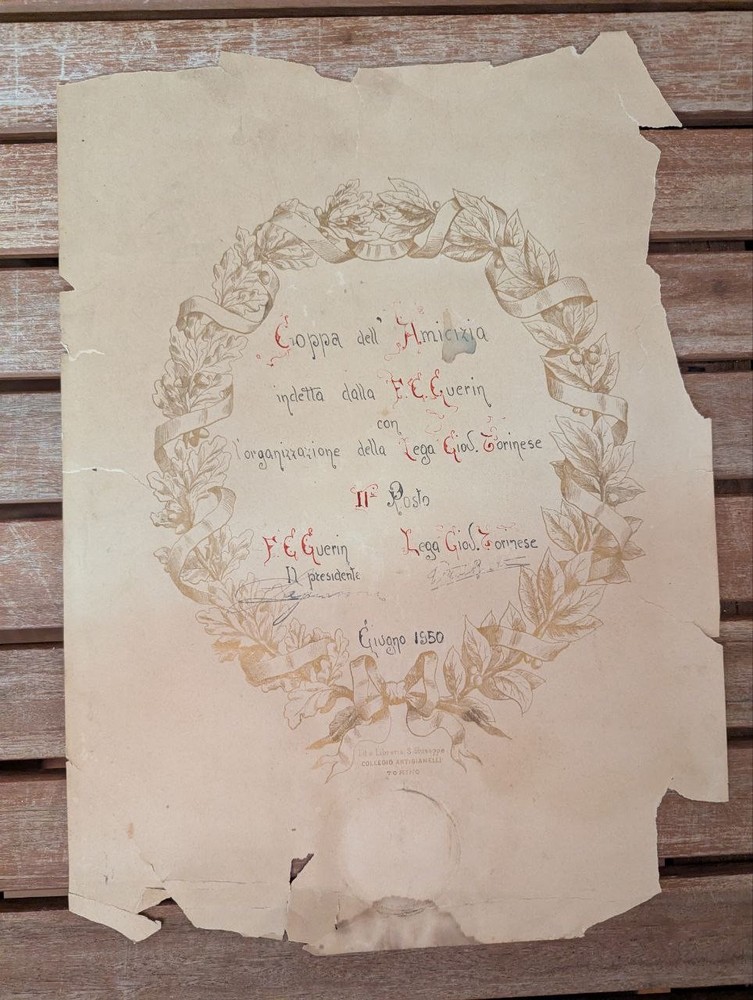 Coppa dell' Amicizia
indetta dalla F.C. Guerin
con
l'organizzazione della Lega Giov. Torinese
II° Posto
F C Guerin Lega Giov. Torinese
Il presidente
Giugno 1950
Libreria S. Giuseppe
COLLEGIO ARTIGIANELLI
TORINO